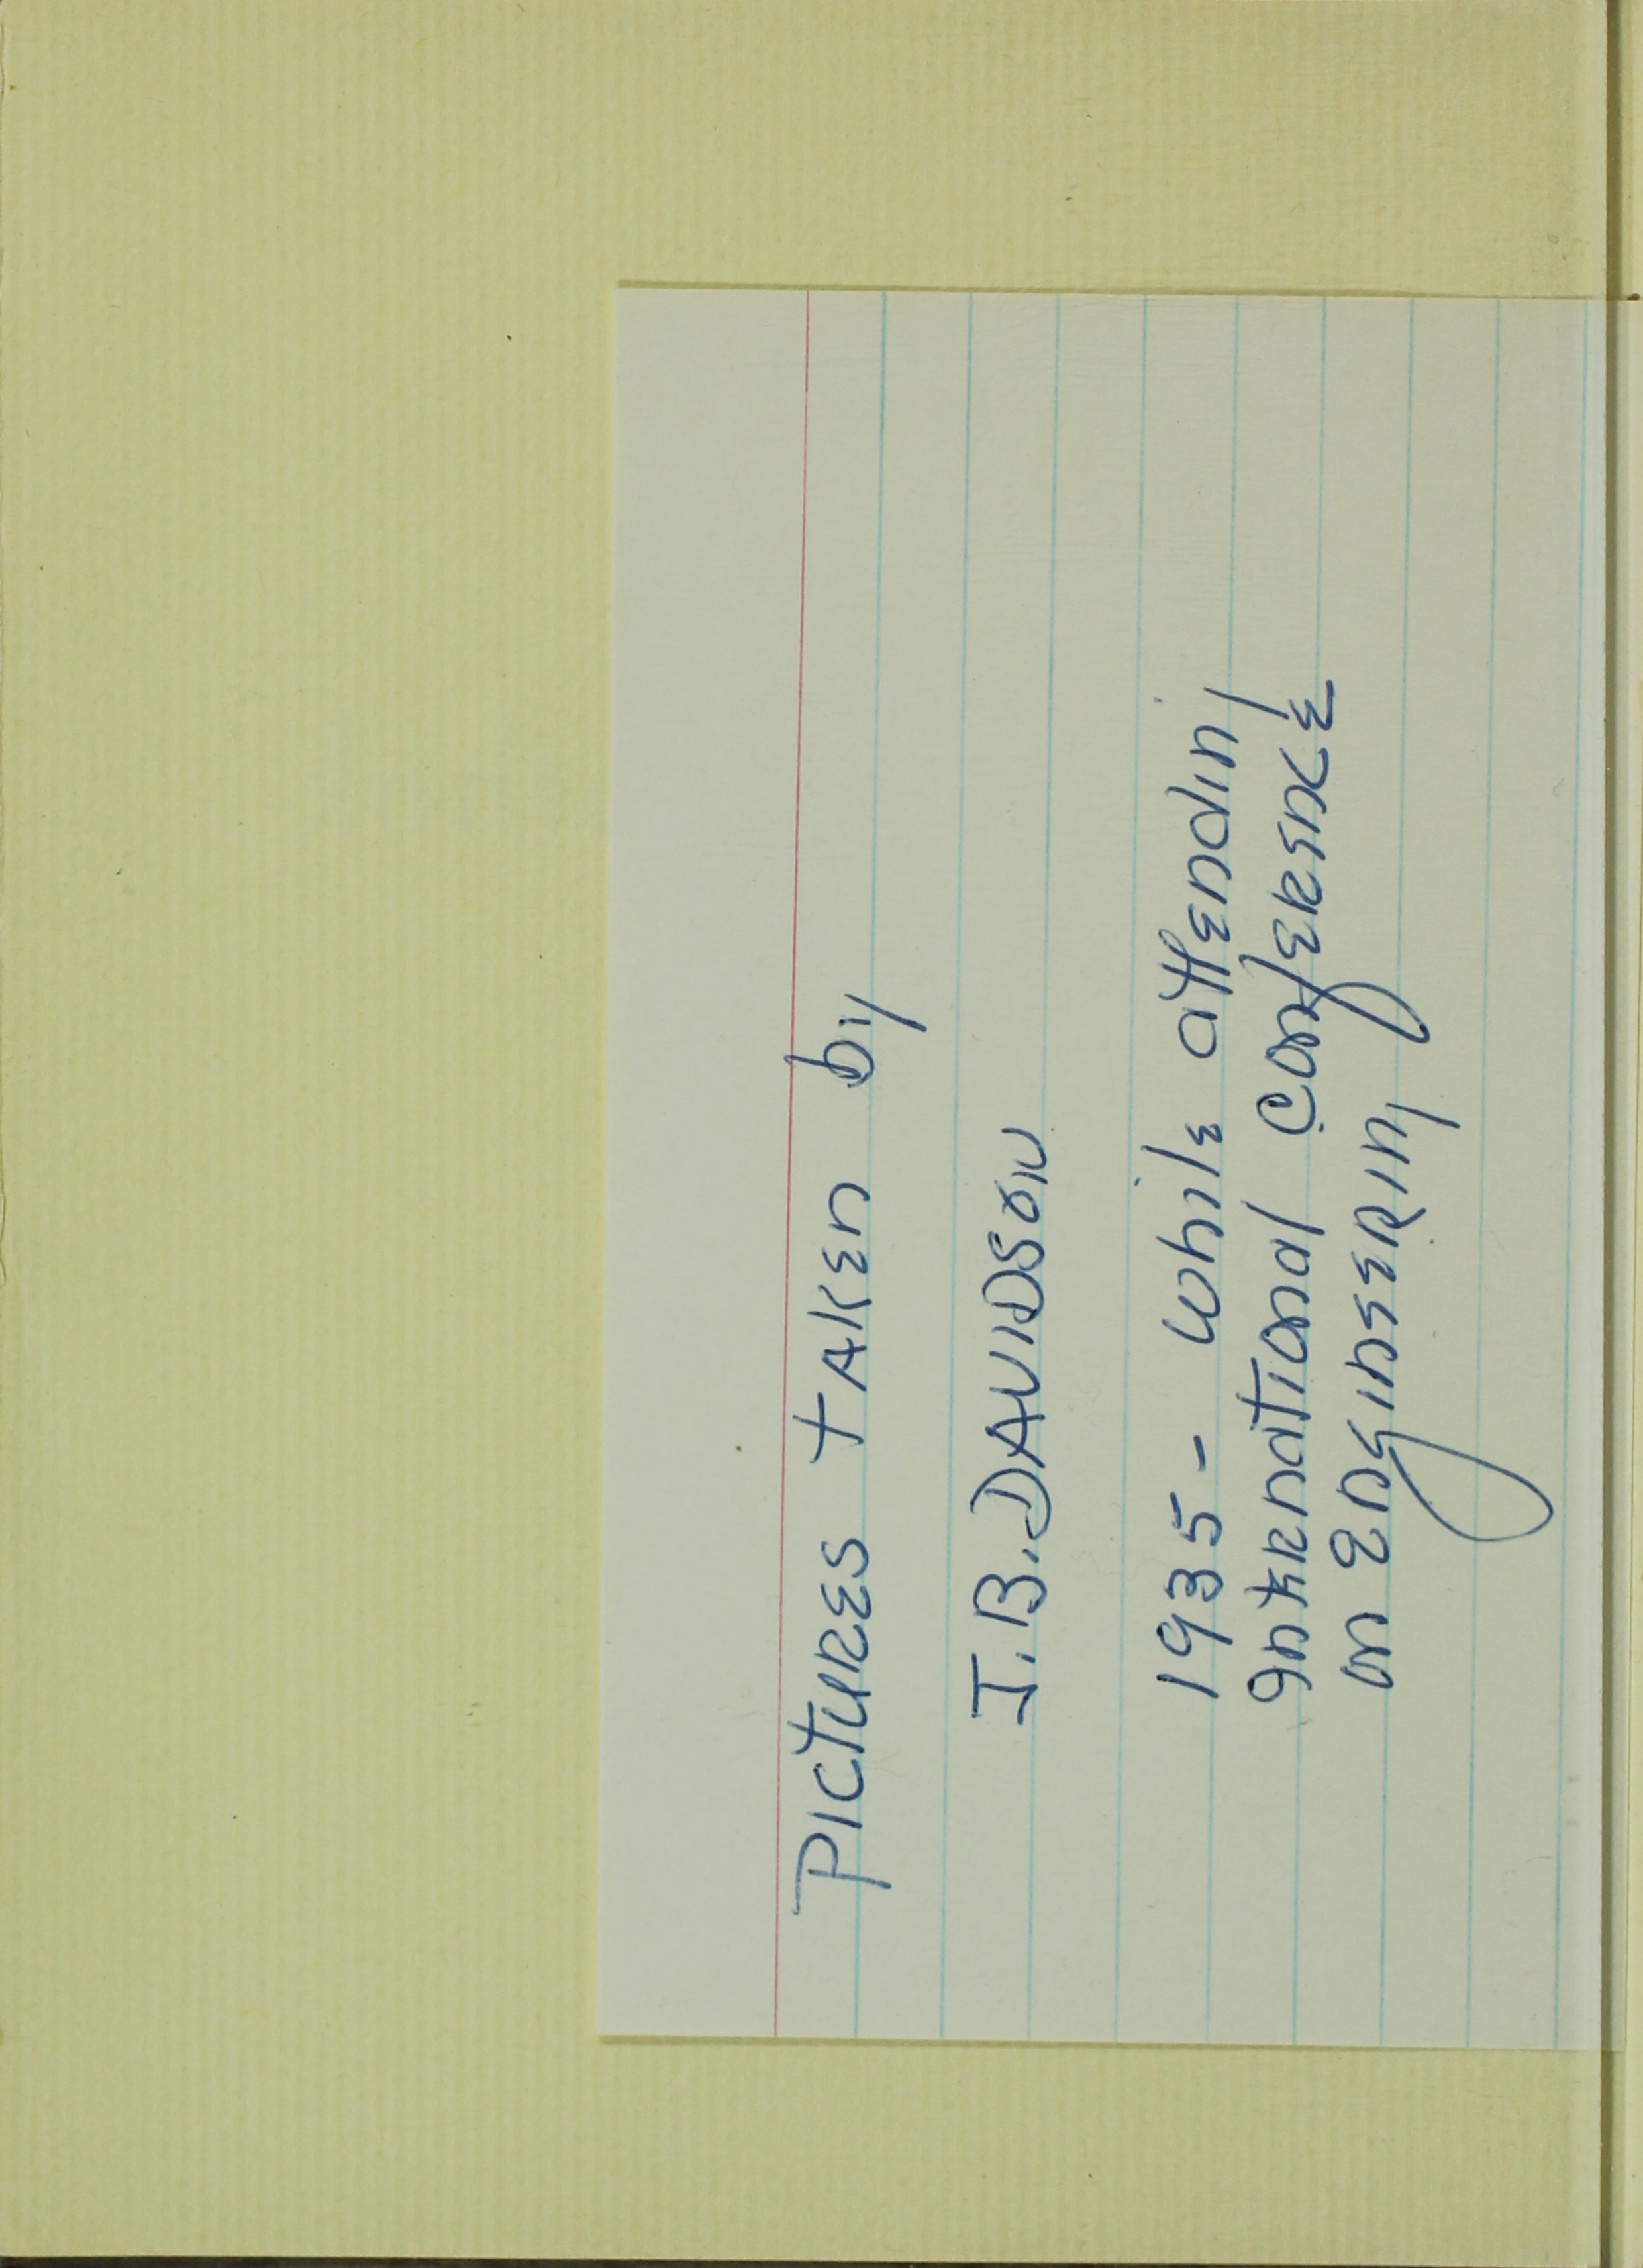 Pictures taken by
J.B. DAVIDSON
1935 - while attending
International Conference
on Engineering